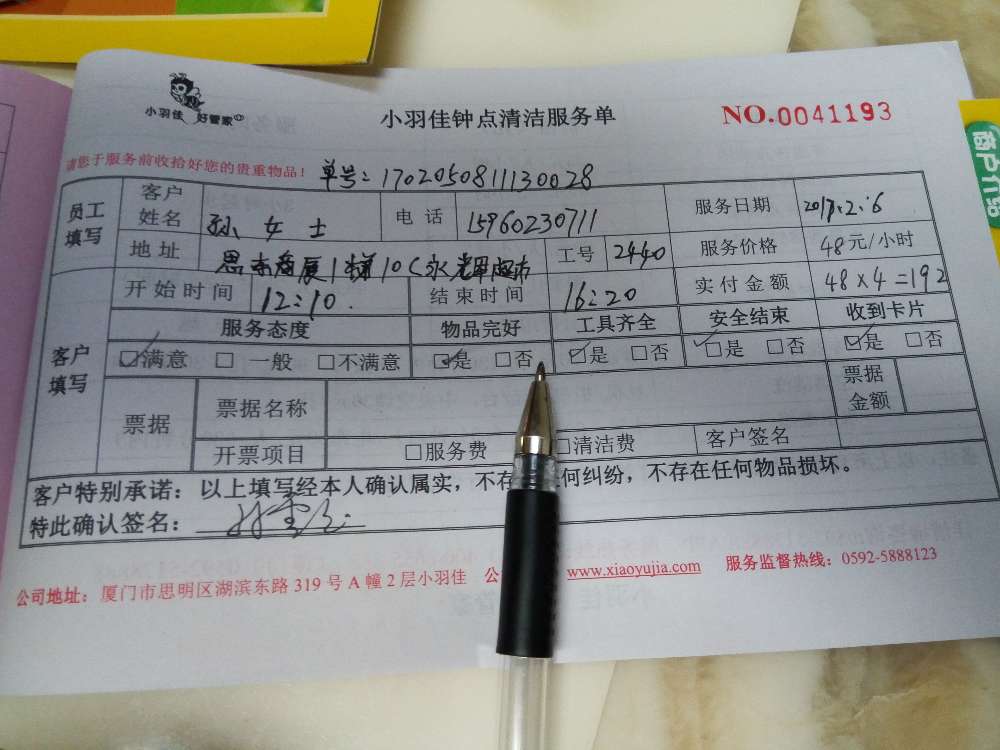 小羽佳 好管家
小羽佳钟点清洁服务单
NO.0041193
请您于服务前收拾好您的贵重物品！ 单号：1702050811130028
员工填写 客户姓名 孙女士 电话 15960230711 服务日期 2017.2.6
地址 1梯10C 工号 2440 服务价格 48元/小时
客户填写 开始时间 12:10. 结束时间 16:20 实付金额 48×4=192
服务态度 物品完好 工具齐全 安全结束 收到卡片
☑满意 □一般 □不满意 ☑是 □否 ☑是 □否 ☑是 □否 ☑是 □否
票据 票据名称 票据金额
开票项目 □服务费 □清洁费 客户签名
客户特别承诺：以上填写经本人确认属实，不存 何纠纷，不存在任何物品损坏。
特此确认签名：
公司地址：厦门市思明区湖滨东路319号A幢2层小羽佳 公 www.xiaoyujia.com 服务监督热线：0592-5888123
商户